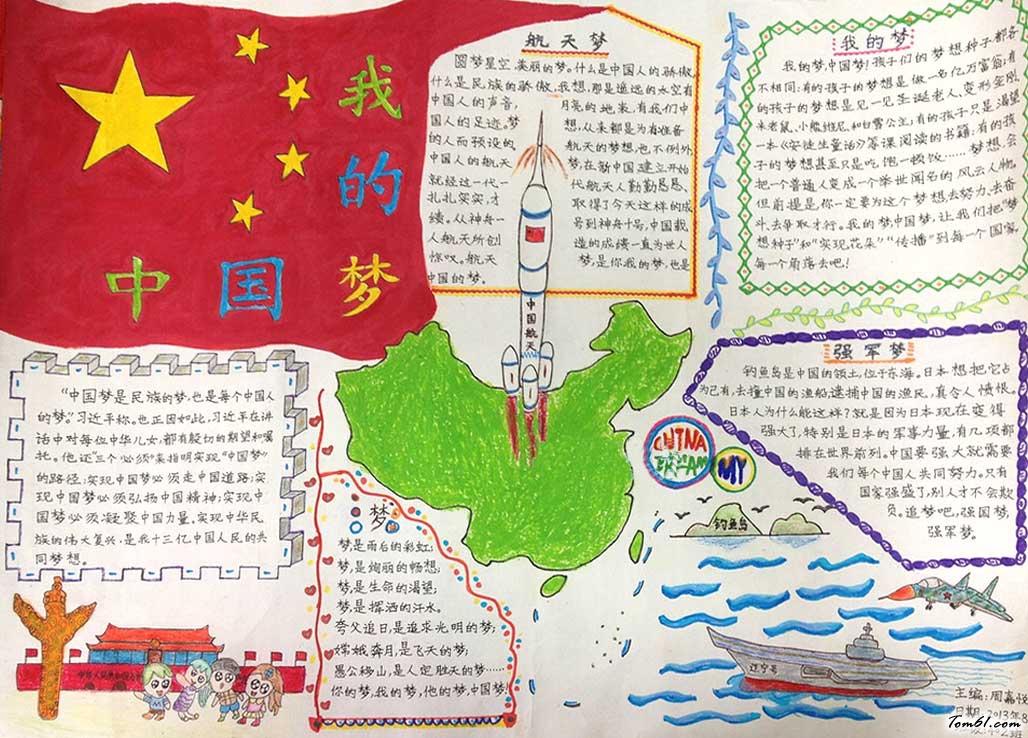 我的
中国梦
航天梦
圆梦星空,美丽的梦。什么是中国人的骄傲,
什么是民族的骄傲,我想,那是遥远的水空有
中国人的声音,
月亮的地表,有我们中
国人的足迹。梦
想,从来都是为有准备
的人而预设的,
航天人的梦想,也不例外
中国人的航天
梦,在新中国建立开始
就经过一代一
代航天人勤勤恳恳、
扎扎实实,才
取得了今天这样的成
绩。从神舟一
号到神舟十号,中国载
人航天所创
造的成绩一直为世人
惊叹。航天
梦,是你我的梦,也是
中国的梦。
中国航天
我的梦
我的梦,中国梦!孩子们的梦想种子都各
不相同:有的孩子的梦想是做一名亿万富翁;有
的孩子的梦想是见一见圣诞老人、变形金刚、
米老鼠、小熊维尼、和白雪公主;有的孩子只是渴望
一本《安徒生童话》等课阅读的书籍;有的孩
子的梦想甚至只是吃饱一顿饭……梦想,会
把一个普通人变成一个举世闻名的风云人物。
但前提是你一定要为这个梦想去努力、去奋
斗、去争取才行。我的梦,中国梦,让我们把“梦
想种子”和“实现花朵”“传播”到每一个国家,
每一个角落去吧!
强军梦
钓鱼岛是中国的领土,位于东海。日本想把它占
为己有,去撞中国的渔船,逮捕中国的渔民,真令人愤恨。
日本人为什么能这样?就是因为日本现在变得
强大了,特别是日本的军事力量,有几项都
排在世界前列。中国要强大就需要
我们每个中国人共同努力。只有
国家强盛了,别人才不会欺
负。追梦吧,强国梦,
强军梦。
“中国梦是民族的梦,也是每个中国人
的梦。”习近平称。也正因如此,习近平在讲
话中对每位中华儿女,都有殷切的期望和嘱
托。他还“三个必须”来指明实现“中国梦”
的路径:实现中国梦必须走中国道路;实
现中国梦必须弘扬中国精神;实现中
国梦必须凝聚中国力量。实现中华民
族的伟大复兴,是我十三亿中国人民的共
同梦想。
梦
梦,是雨后的彩虹;
梦,是绚丽的畅想;
梦,是生命的渴望;
梦,是挥洒的汗水。
夸父追日,是追求光明的梦;
嫦娥奔月,是飞天的梦;
愚公移山,是人定胜天的梦……
你的梦,我的梦,他的梦,中国梦!
CHINA
MY
钓鱼岛
辽宁号
主编:周嘉悦
日期:2013年8
Tom61.com